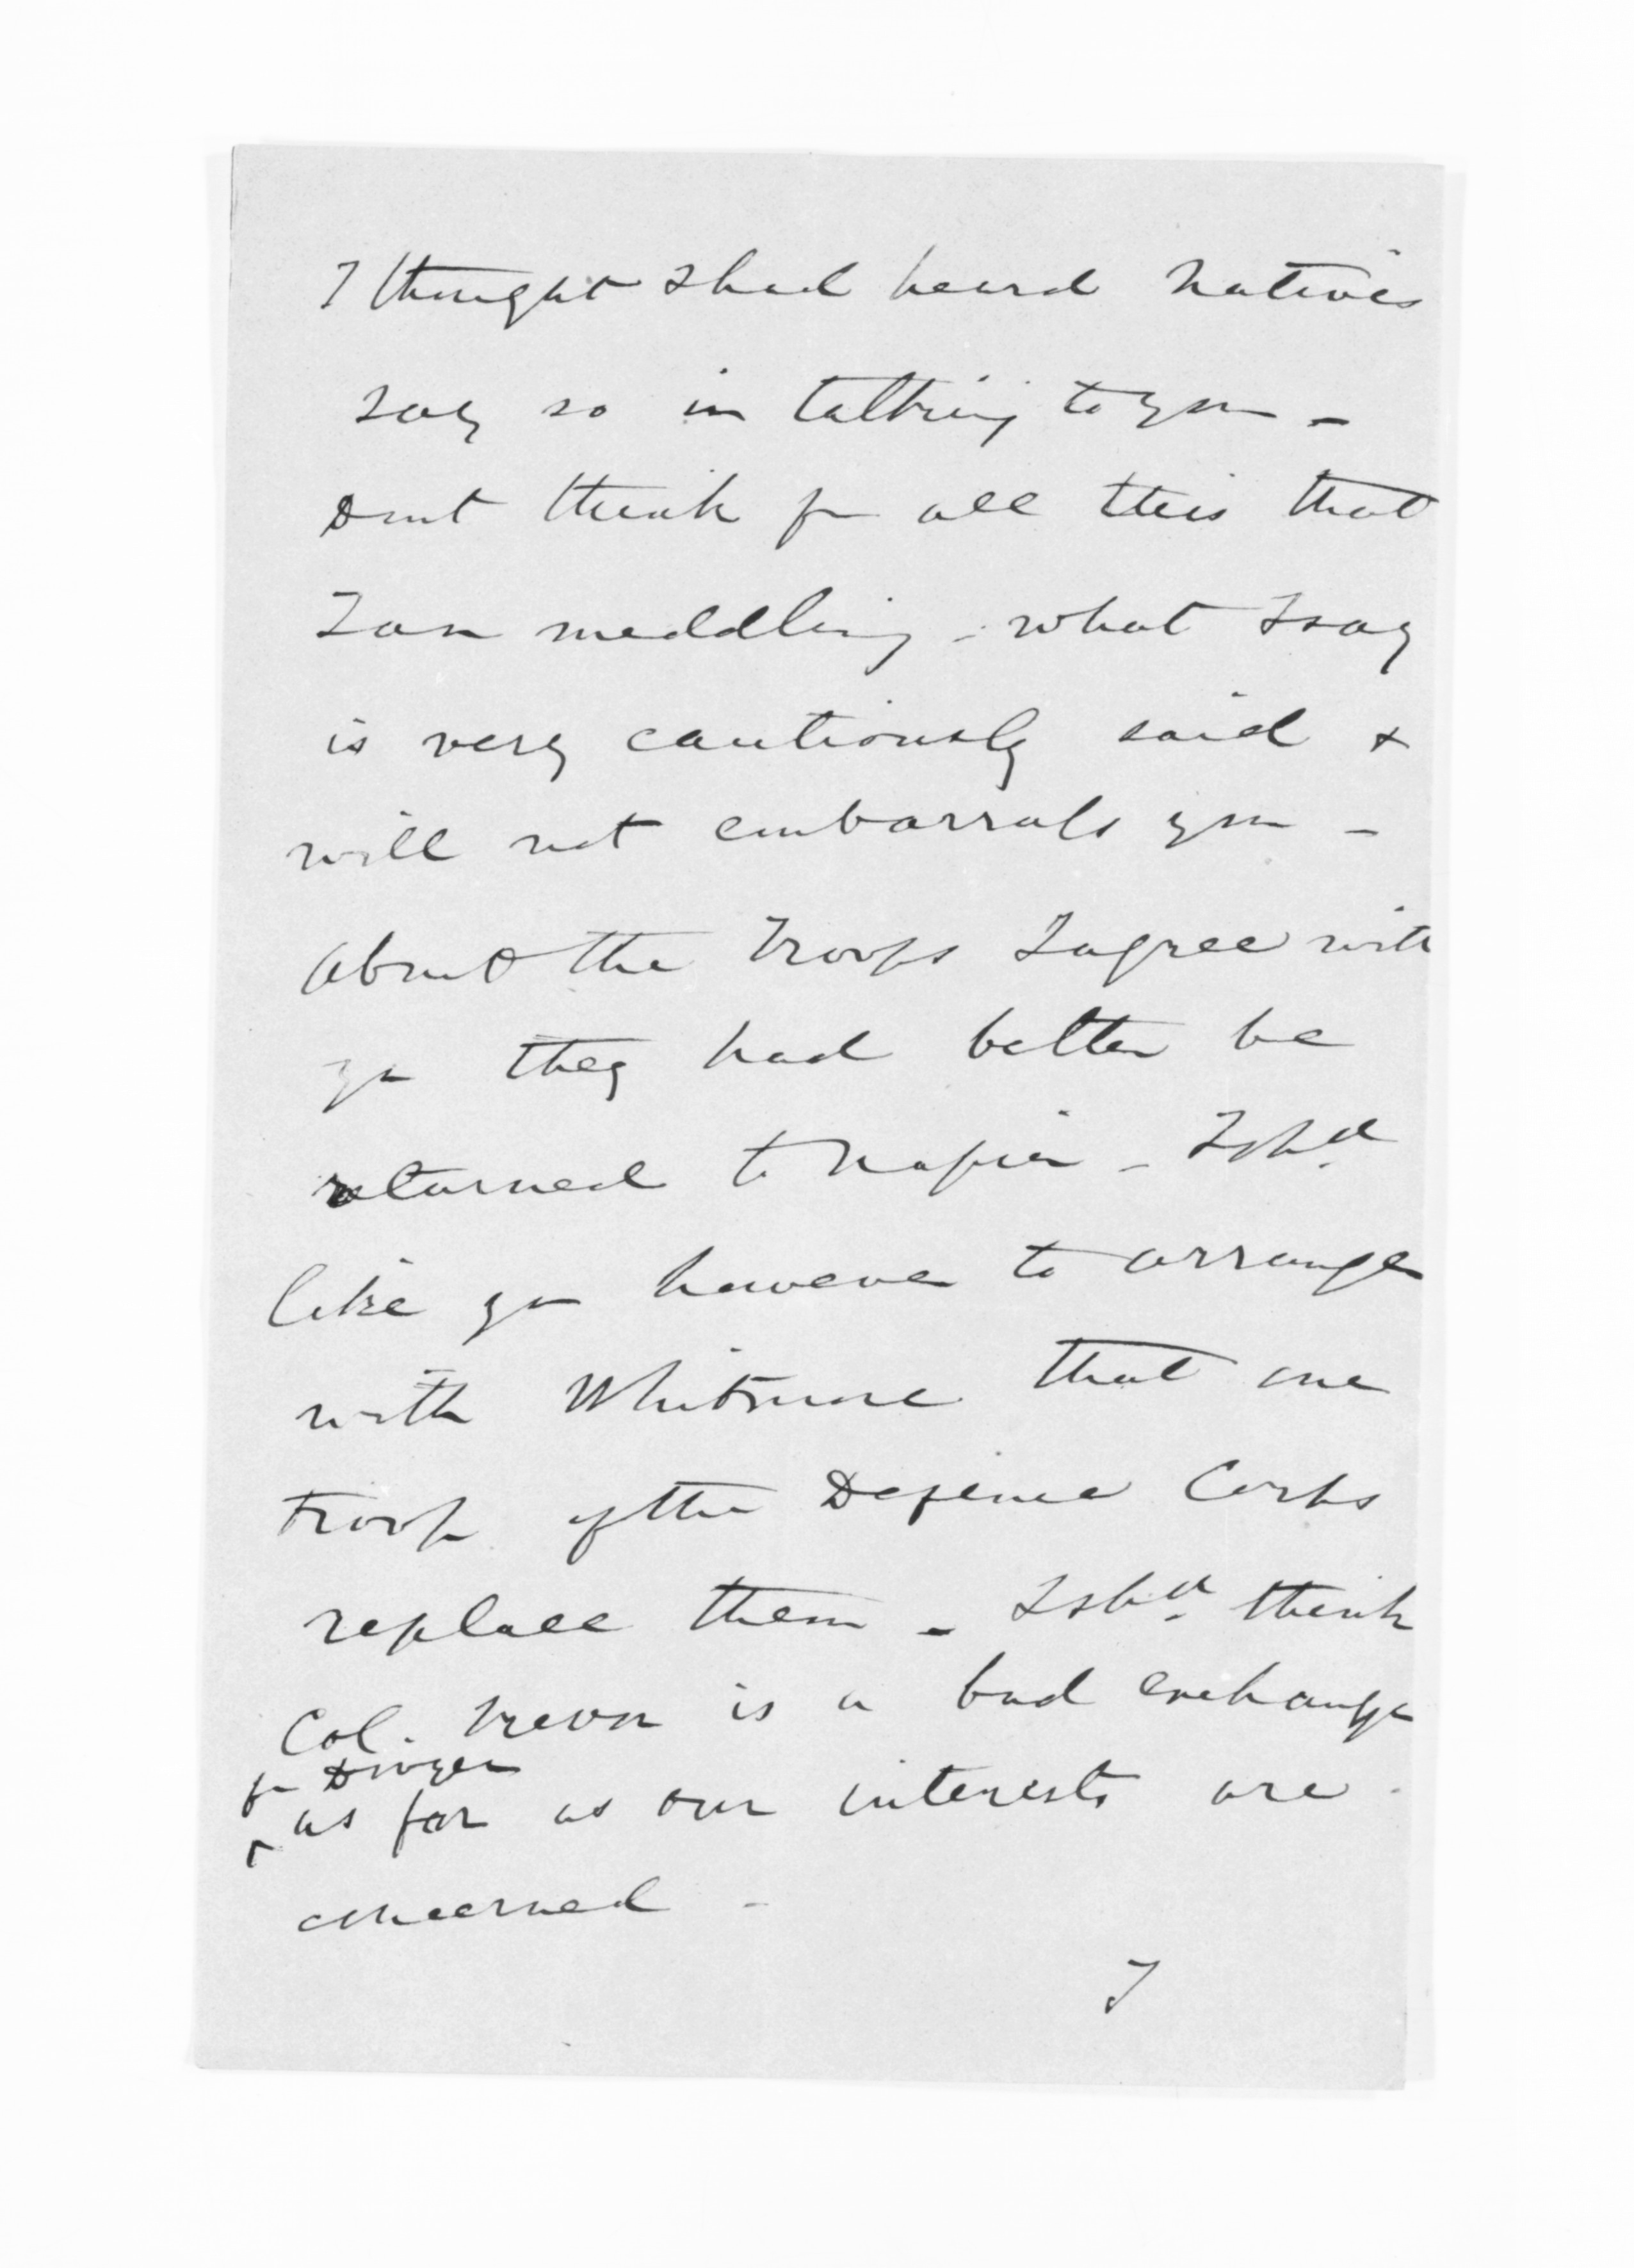 I thought I had heard Natives
say so in talking to you -
Dont think for all this that
I am meddling - what I say
is very cautiously said &
will not embarrass you -
About the Troops I agree with
you they had better be
returned to Napier - I shd.
like you however to arrange
with Whitmore that one
troop of the Defence Corps
replace them - I shd. think
Col. Trevor is a bad exchange
for Dwyer
as far as our interests are
concerned -
I